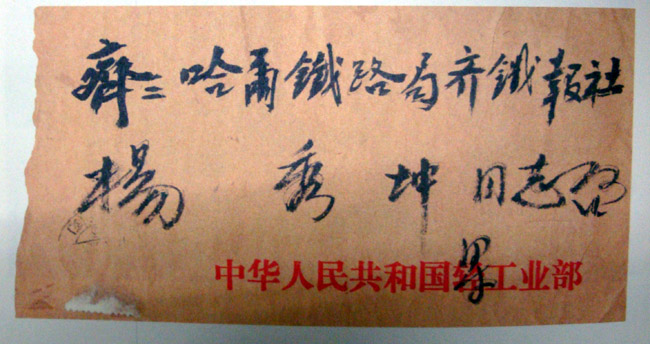 齊々哈爾鐵路局齐鐵報社
楊秀坤同志启
中华人民共和国轻工业部